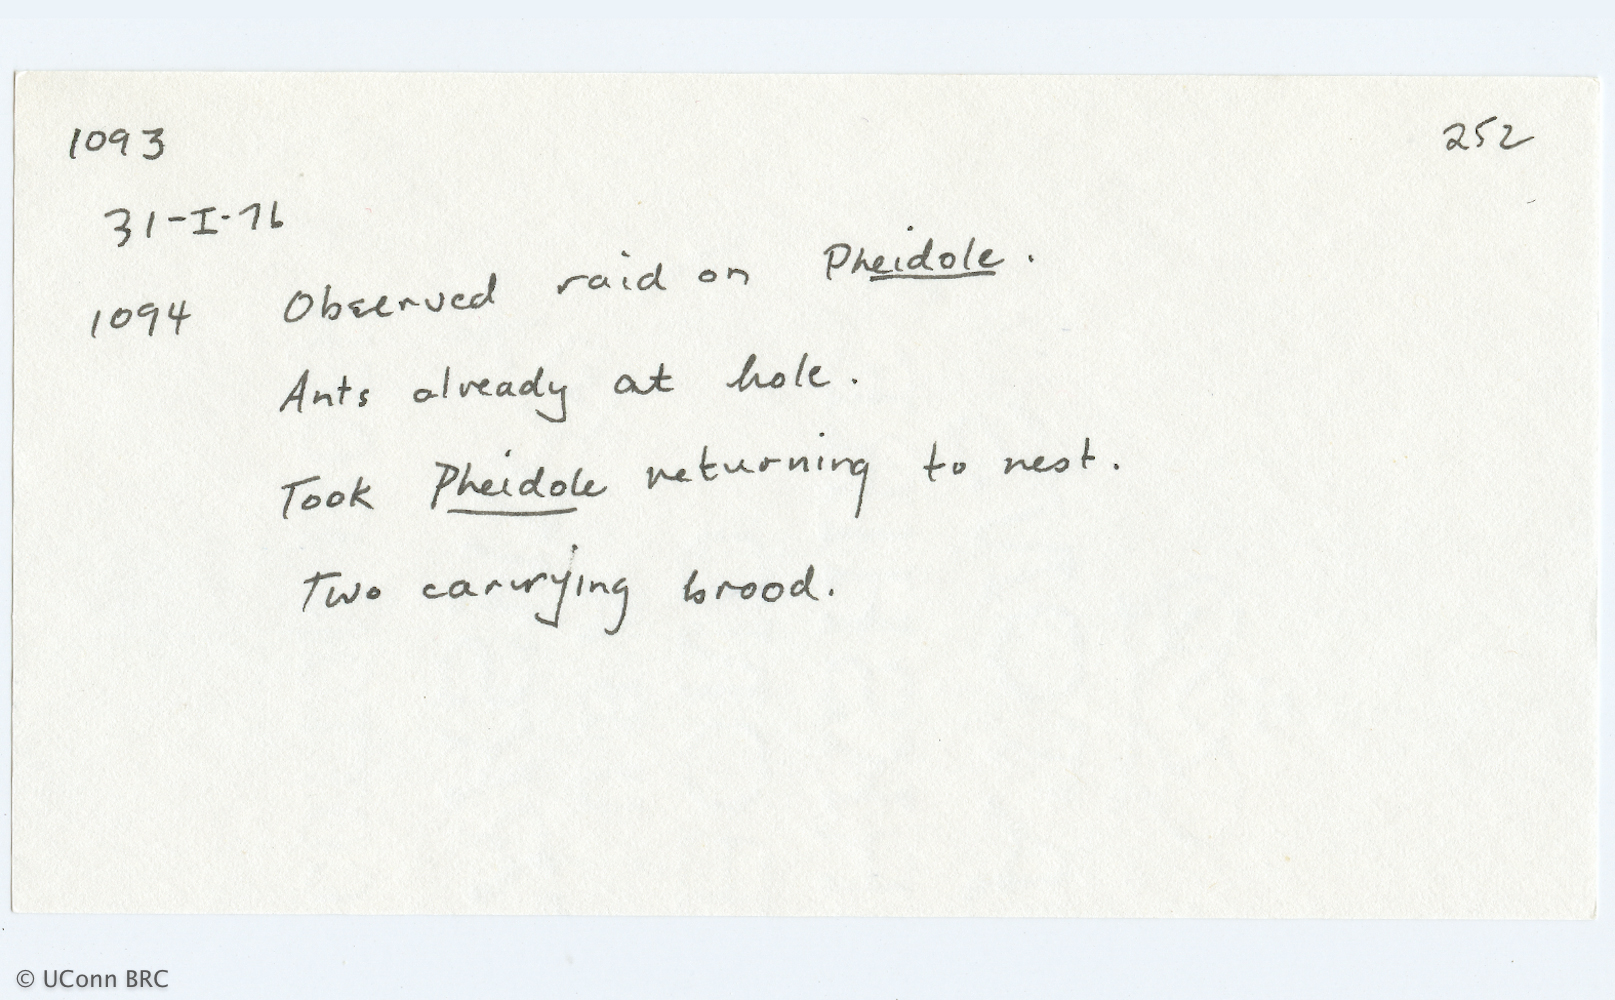 1093
252
31-I-76
1094 Observed raid on Pheidole.
Ants already at hole.
Took Pheidole returning to nest.
Two carrying brood.
© UConn BRC